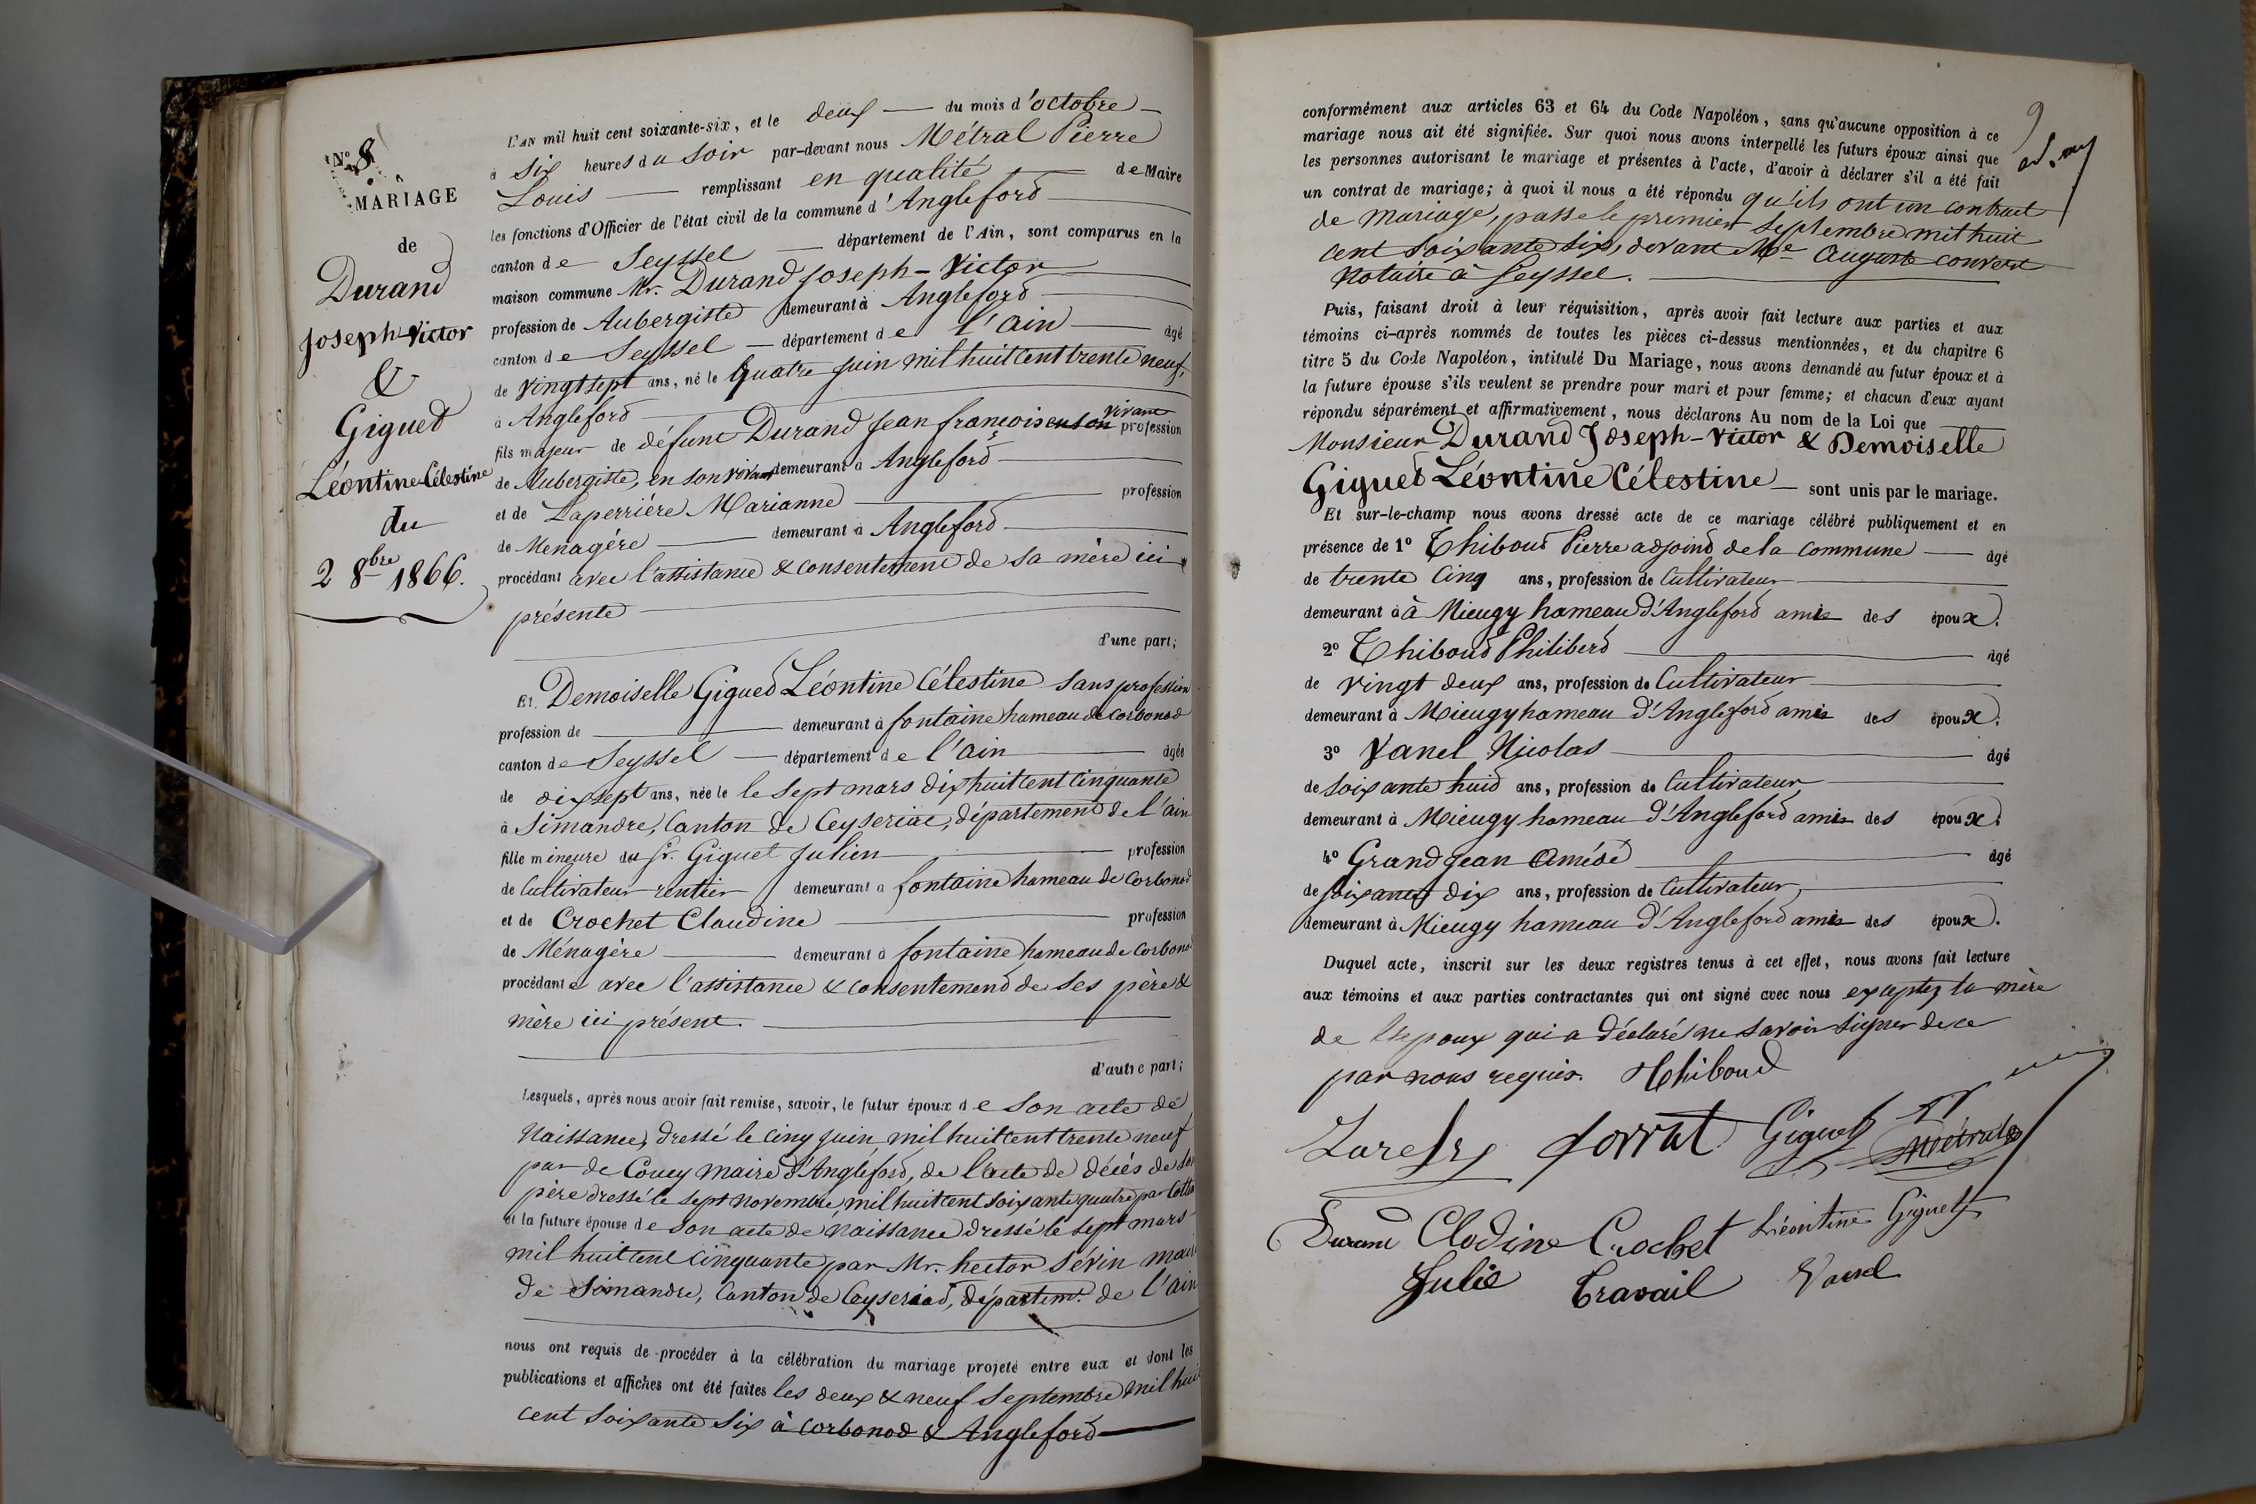 N° 8
MARIAGE
de
Durand
Joseph-Victor
&
Giguet
Léontine Célestine
du
2 8bre 1866.
L'AN mil huit cent soixante-six, et le deux du mois d'octobre
à six heures du soir par-devant nous Métral Pierre
Louis remplissant en qualité de Maire
les fonctions d'Officier de l'état civil de la commune d'Angleford
canton de Seyssel département de l'Ain, sont comparus en la
maison commune Mr. Durand Joseph-Victor
profession de Aubergiste demeurant à Angleford
canton de Seyssel département de l'ain âgé
de vingt sept ans, né le quatre juin mil huit cent trente neuf,
à Angleford
fils majeur de défunt Durand Jean françois en son vivant profession
de Aubergiste, en son vivant demeurant à Angleford
et de Laperrière Marianne profession
de Menagère demeurant à Angleford
procédant avec l'assistance & consentement de sa mère ici
présente
d'une part;
Et Demoiselle Giguet Léontine Célestine sans profession
profession de demeurant à fontaine hameau de Corbonod
canton de Seyssel département de l'ain âgée
de dix sept ans, née le le sept mars dix huit cent cinquante
à Simandre, Canton de Ceyseriac, département de l'ain
fille mineure du Sr. Giguet Julien profession
de Cultivateur rentier demeurant à fontaine hameau de Corbonod
et de Crochet Claudine profession
de Ménagère demeurant à fontaine hameau de Corbonod
procédante avec l'assistance & consentement de ses père &
mère ici présent.
d'autre part;
Lesquels, après nous avoir fait remise, savoir, le futur époux de son acte de
Naissance, dressé le cinq juin mil huit cent trente neuf
par de Coucy maire d'Angleford, de l'acte de décès de son
père dressé le sept novembre, mil huit cent soixante quatre par
et la future épouse de son acte de naissance dressé le sept mars
mil huit cent cinquante par Mr. hector Sévin maire
de Simandre, Canton de Ceyseriad, départemt. de l'ain
nous ont requis de procéder à la célébration du mariage projeté entre eux et dont les
publications et affiches ont été faites les deux & neuf Septembre mil huit
cent soixante six à Corbonod & Angleford
9
conformément aux articles 63 et 64 du Code Napoléon, sans qu'aucune opposition à ce
mariage nous ait été signifiée. Sur quoi nous avons interpellé les futurs époux ainsi que
les personnes autorisant le mariage et présentes à l'acte, d'avoir à déclarer s'il a été fait
un contrat de mariage; à quoi il nous a été répondu qu'ils ont un contrat
de mariage, passé le premier Septembre mil huit
cent soixante six, devant Me Auguste convert
Notaire à Seyssel.
Puis, faisant droit à leur réquisition, après avoir fait lecture aux parties et aux
témoins ci-après nommés de toutes les pièces ci-dessus mentionnées, et du chapitre 6
titre 5 du Code Napoléon, intitulé Du Mariage, nous avons demandé au futur époux et à
la future épouse s'ils veulent se prendre pour mari et pour femme; et chacun d'eux ayant
répondu séparément et affirmativement, nous déclarons Au nom de la Loi que
Monsieur Durand Joseph-Victor & Demoiselle
Giguet Léontine Célestine sont unis par le mariage.
Et sur-le-champ nous avons dressé acte de ce mariage célébré publiquement et en
présence de 1° Thiboud Pierre adjoind de la commune âgé
de trente Cinq ans, profession de Cultivateur
demeurant à à Mieugy hameau d'Angleford amis des époux.
2° Thiboud Philiberd âgé
de vingt deux ans, profession de Cultivateur
demeurant à Mieugy hameau d'Angleford amis des époux.
3° Vanel Nicolas âgé
de soixante huid ans, profession de Cultivateur
demeurant à Mieugy hameau d'Angleford amis des époux.
4° Grandjean Amédé âgé
de soixante dix ans, profession de Cultivateur
demeurant à Mieugy hameau d'Angleford amis des époux.
Duquel acte, inscrit sur les deux registres tenus à cet effet, nous avons fait lecture
aux témoins et aux parties contractantes qui ont signé avec nous exceptez la mère
de l'époux qui a déclaré ne savoir signer de ce
par nous requis. Thiboud
Giguet Métral
Durand Clodine Crochet Léontine Giguet
Julie Travail Vanel